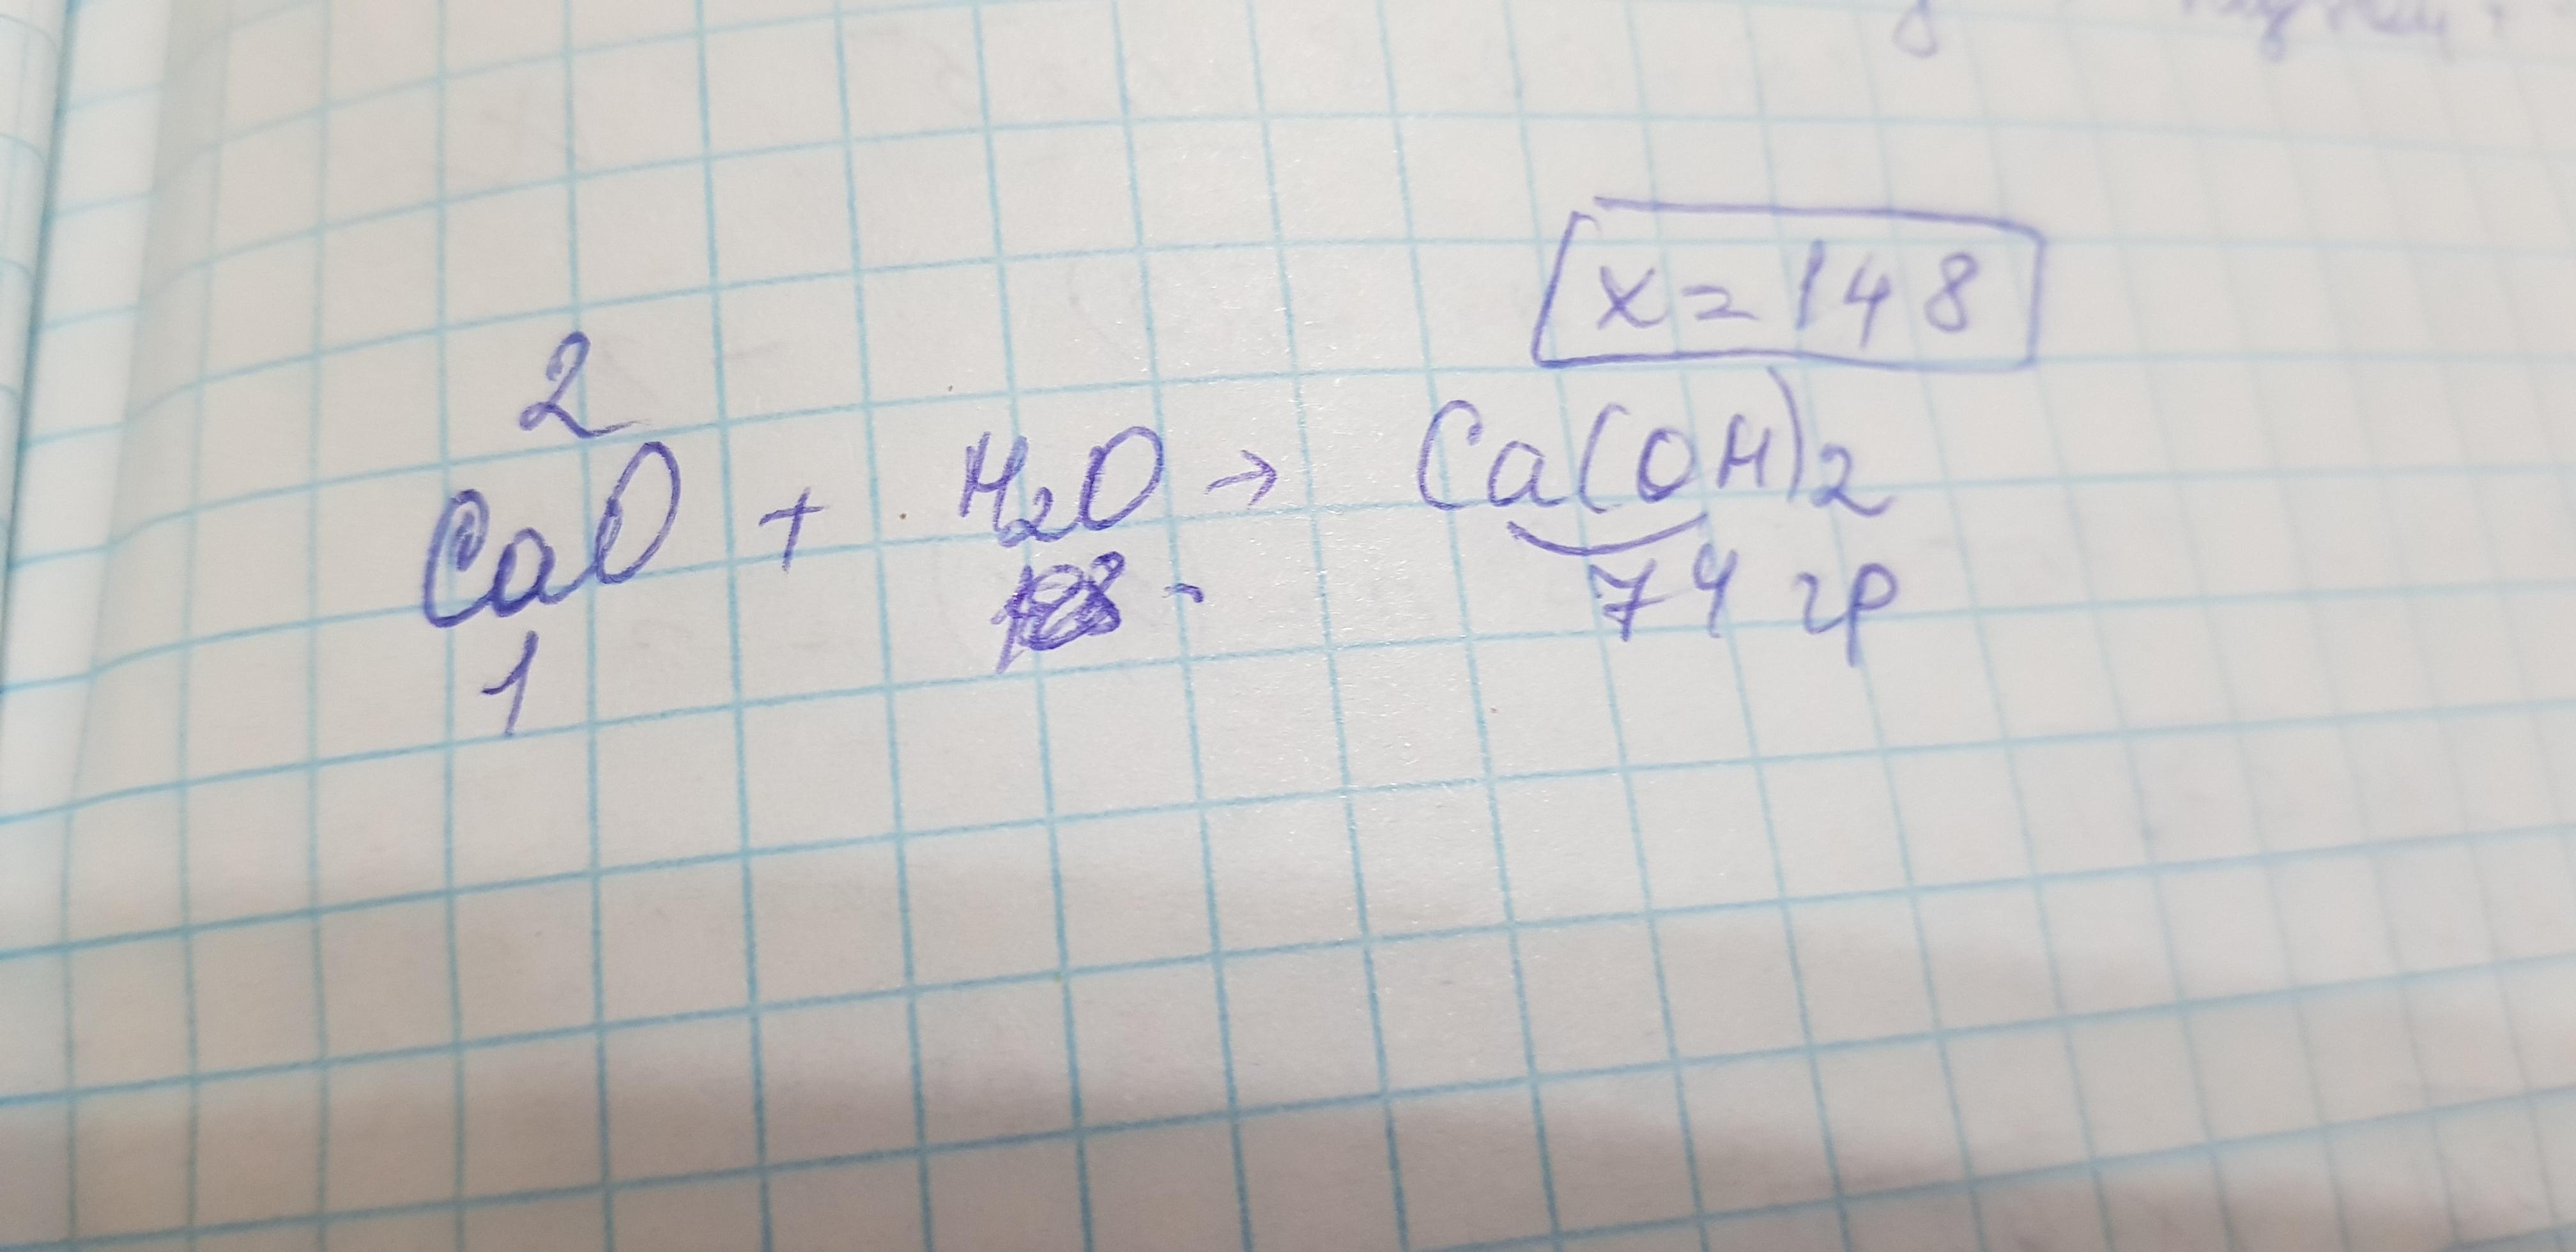 x = 148
2
CaO + H₂O → Ca(OH)₂
1 74 гр